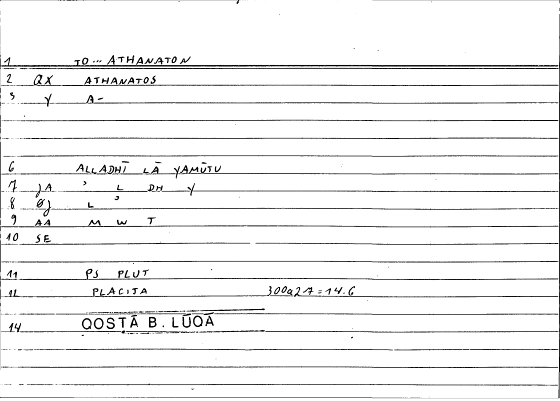 1 TO... ATHANATON
2 QX ATHANATOS
3 Y A-
6 ALLADHĪ LĀ YAMŪTU
7 JA ʾ L DH Y
8 ØJ L ʾ
9 AA M W T
10 SE
11 PS PLUT
12 PLACITA 300a27=14.6
14 QOSTĀ B. LŪQĀ